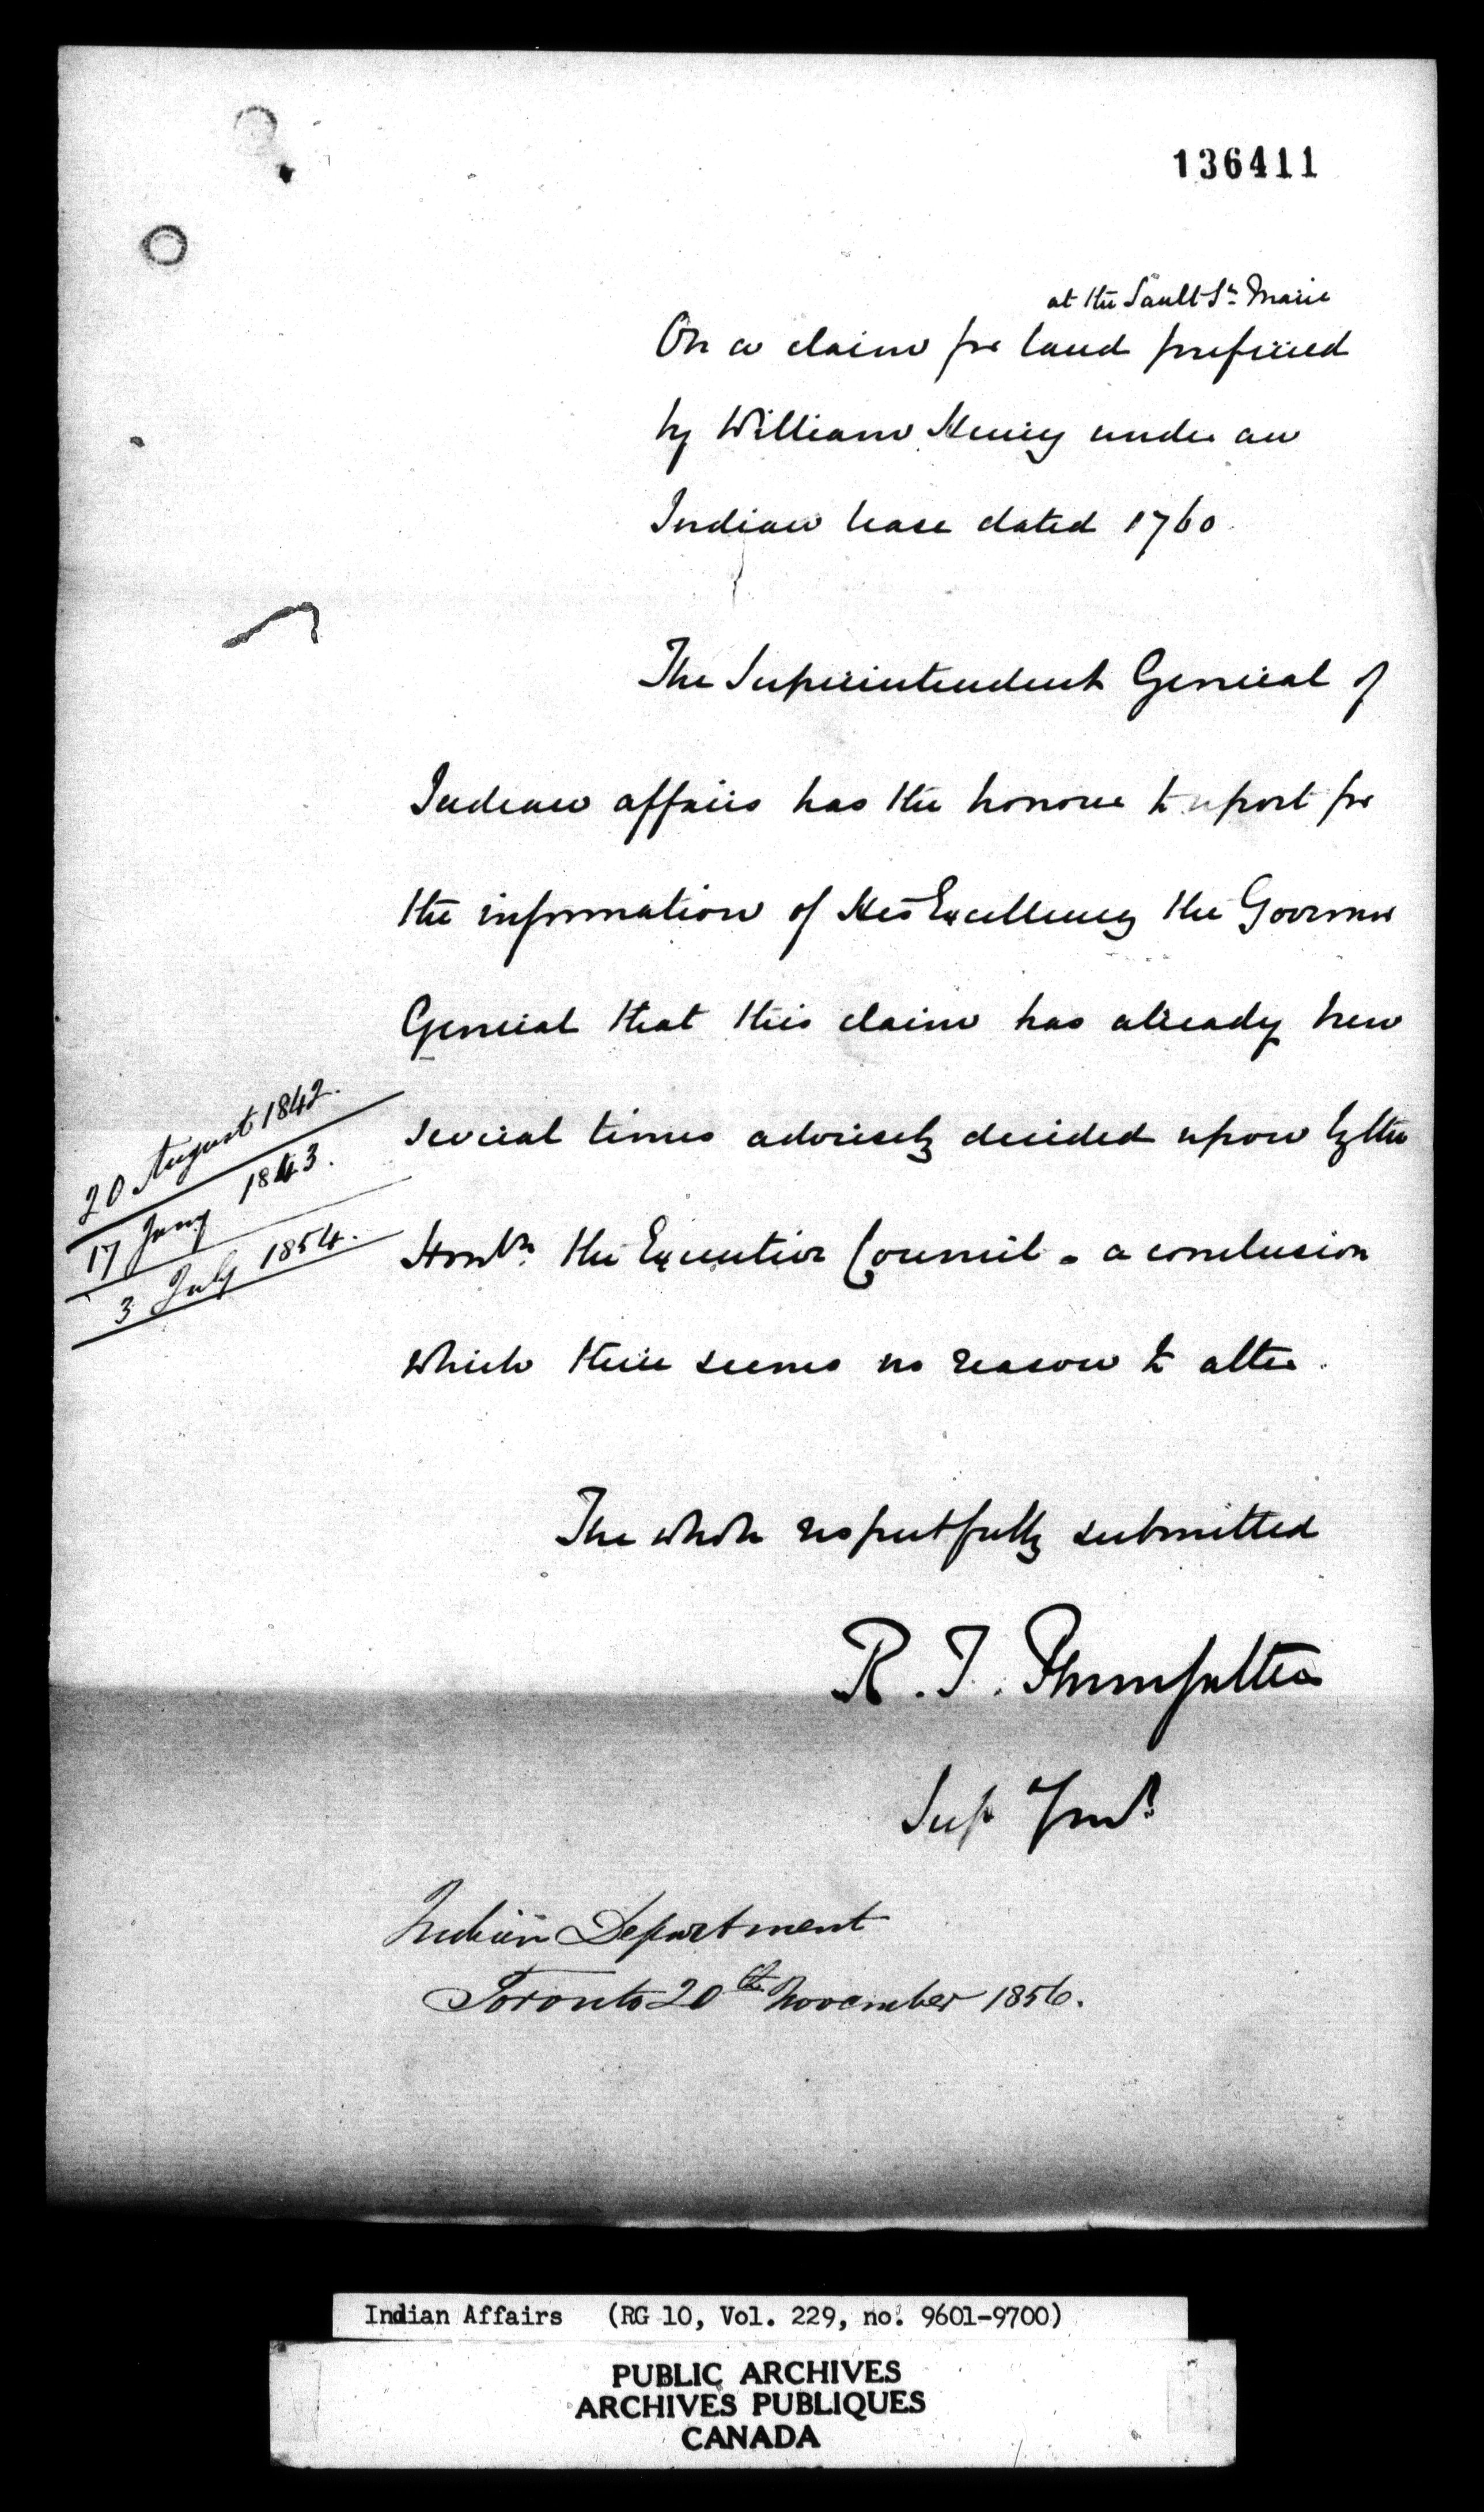 136411
at the Sault Ste Marie
On a claim for land preferred
by William Henry under an
Indian lease dated 1760
The Superintendent General of
Indian affairs has the honour to report for
the information of His Excellency the Governor
General that this claim has already been
several times advisedly decided upon by the
Honble the Executive Council - a conclusion
which there seems no reason to alter.
20 August 1842.
17 Jany 1843.
3 July 1854.
The whole respectfully submitted
R. T. Pennefather
Sup Genl
Indian Department
Toronto 20th November 1856.
Indian Affairs (RG 10, Vol. 229, no. 9601-9700)
PUBLIC ARCHIVES
ARCHIVES PUBLIQUES
CANADA